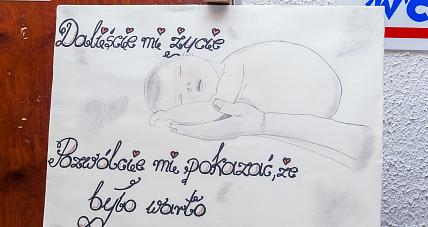 Daliście mi życie
Pozwólcie mi pokazać, że
było warto